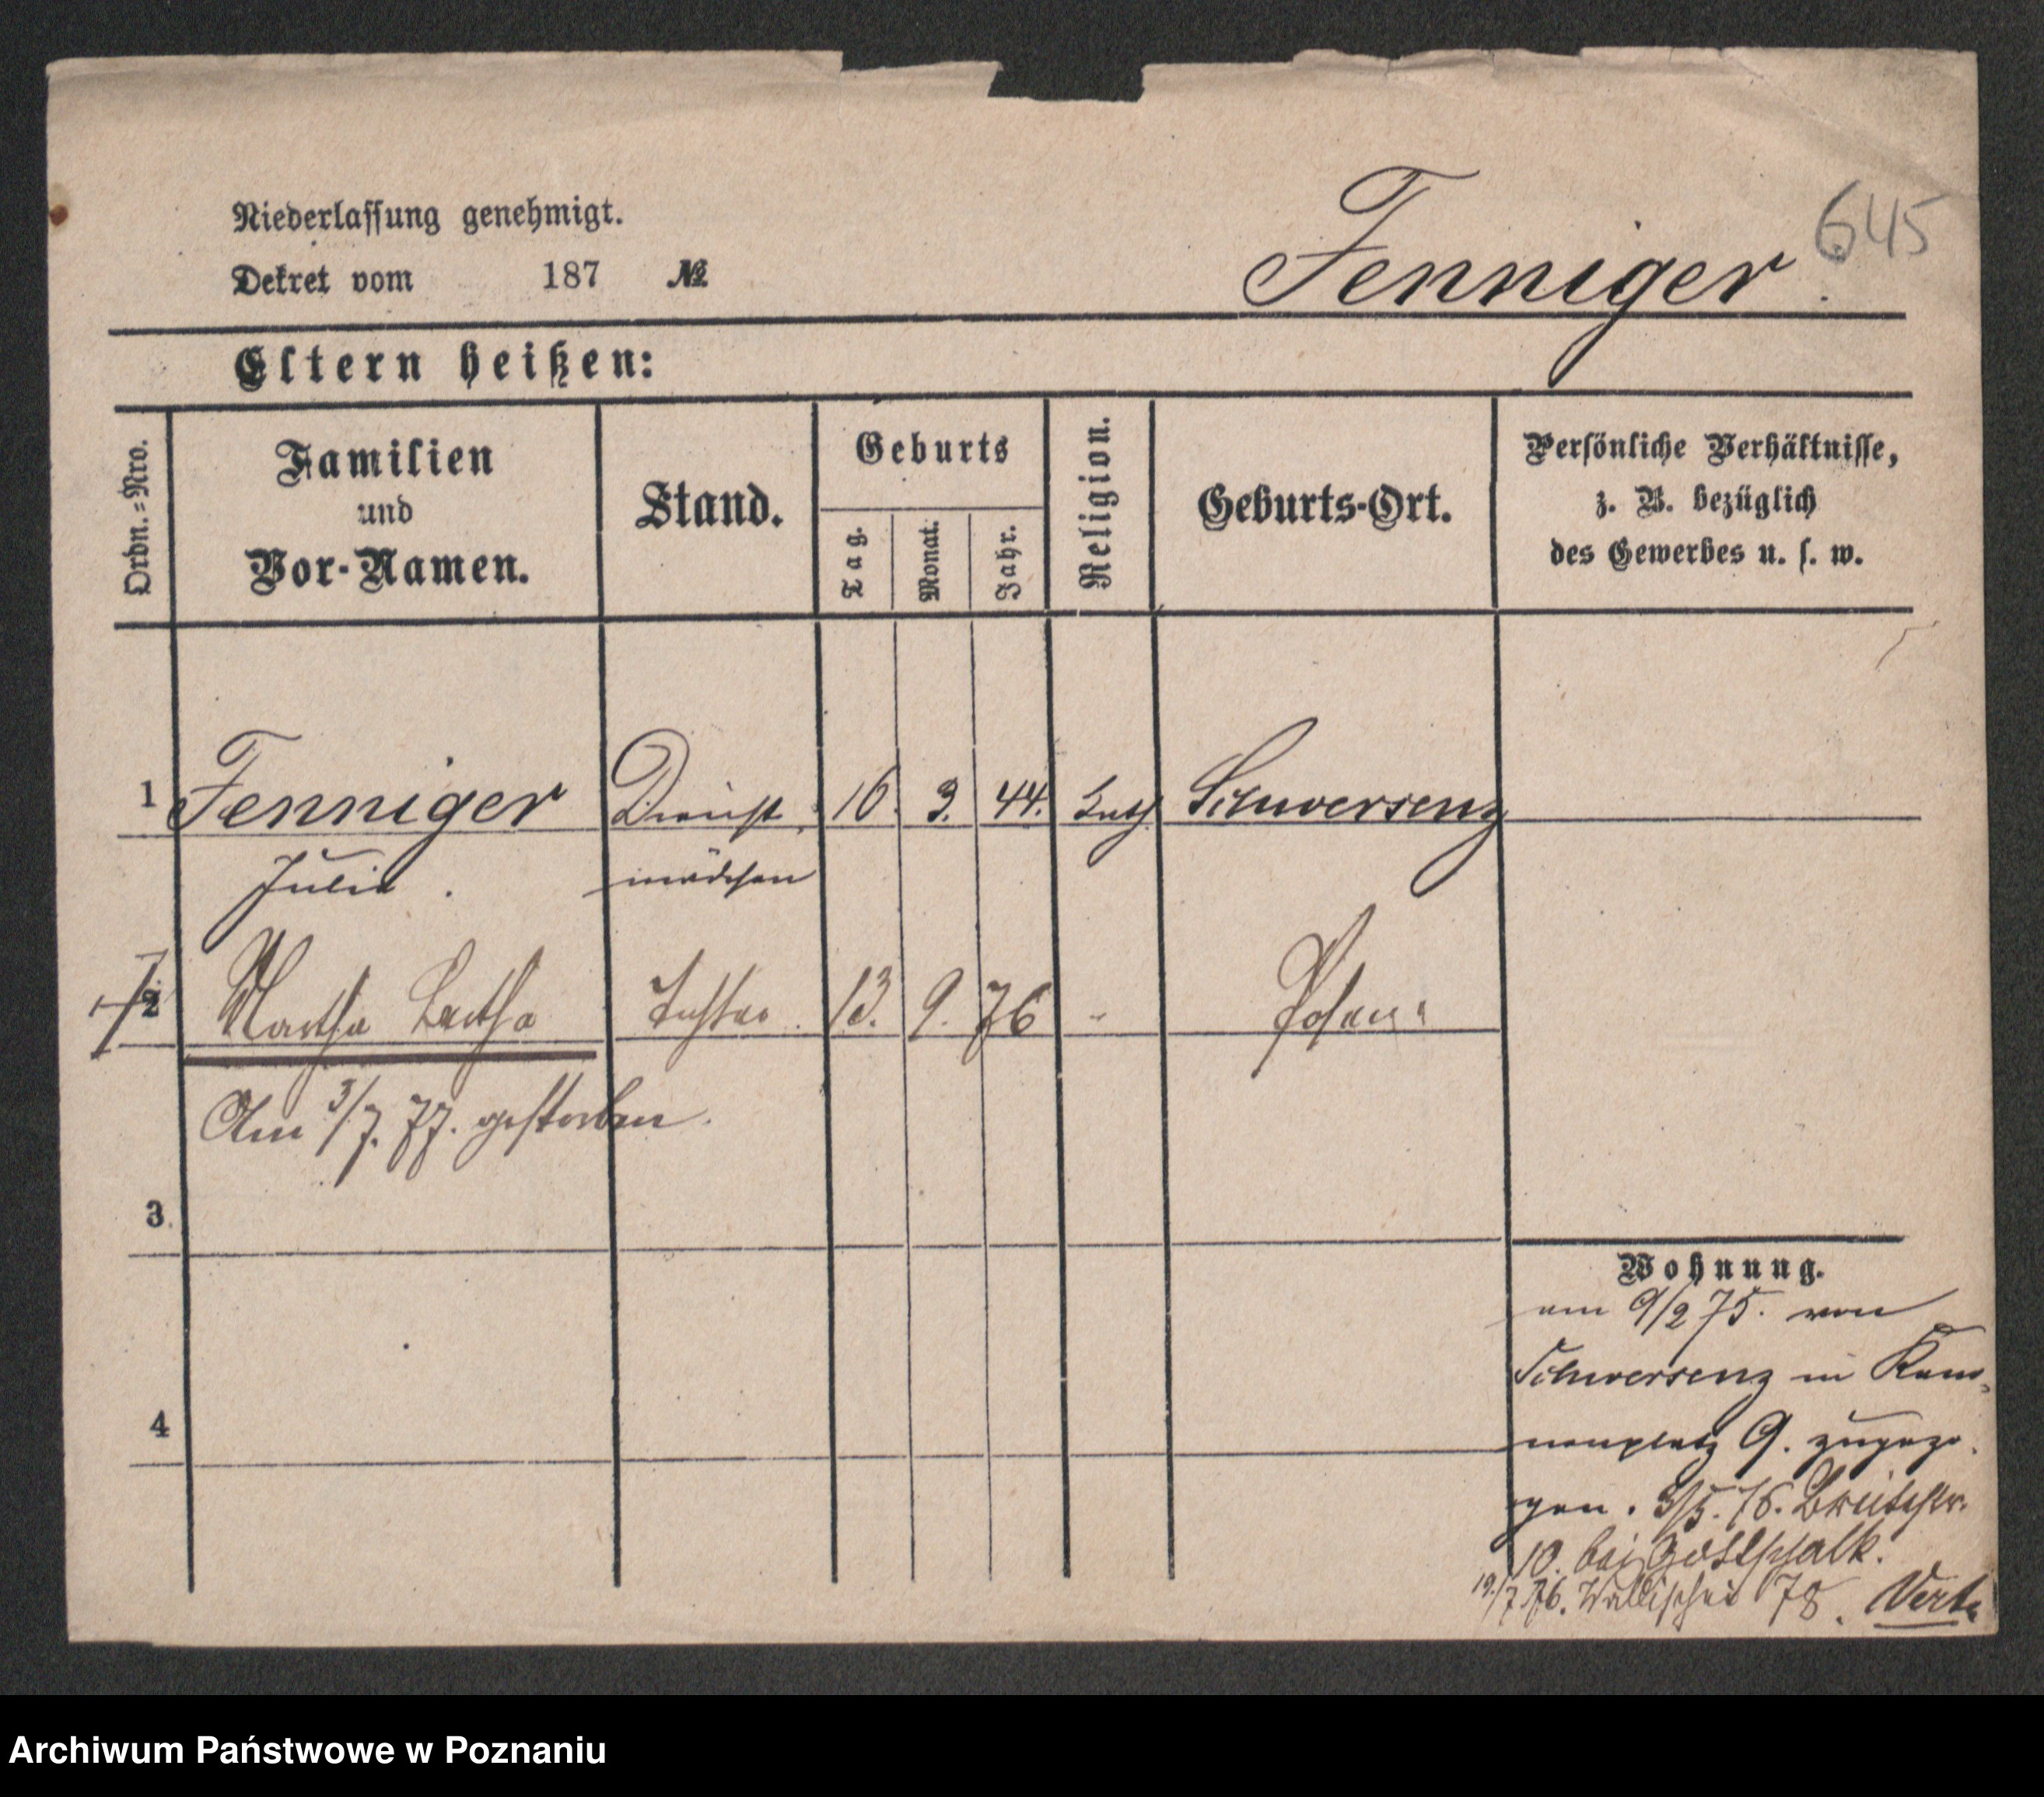 645
Niederlassung genehmigt.
Dekret vom 187 № Fenniger
Eltern heißen:
Ordn.=Nro.
Familien und Vor-Namen.
Stand.
Geburts
Tag. Monat. Jahr.
Religion.
Geburts-Ort.
Persönliche Verhältnisse,
z. B. bezüglich
des Gewerbes u. s. w.
1 Fenniger Dienst 16. 3. 44. Schwersenz
Julie mädchen
2 Martha Bertha Tochter 13. 9. 76 " Posen
Am 3/7. 77. gestorben.
3
4
Wohnung.
am 9/2 75. von
Schwersenz in Kano-
nenplatz 9. zugezo-
gen. 3/5. 76. Breitestr.
10. bei Gottschalk.
19./7 76. Wallischei 78. Vert.
Archiwum Państwowe w Poznaniu